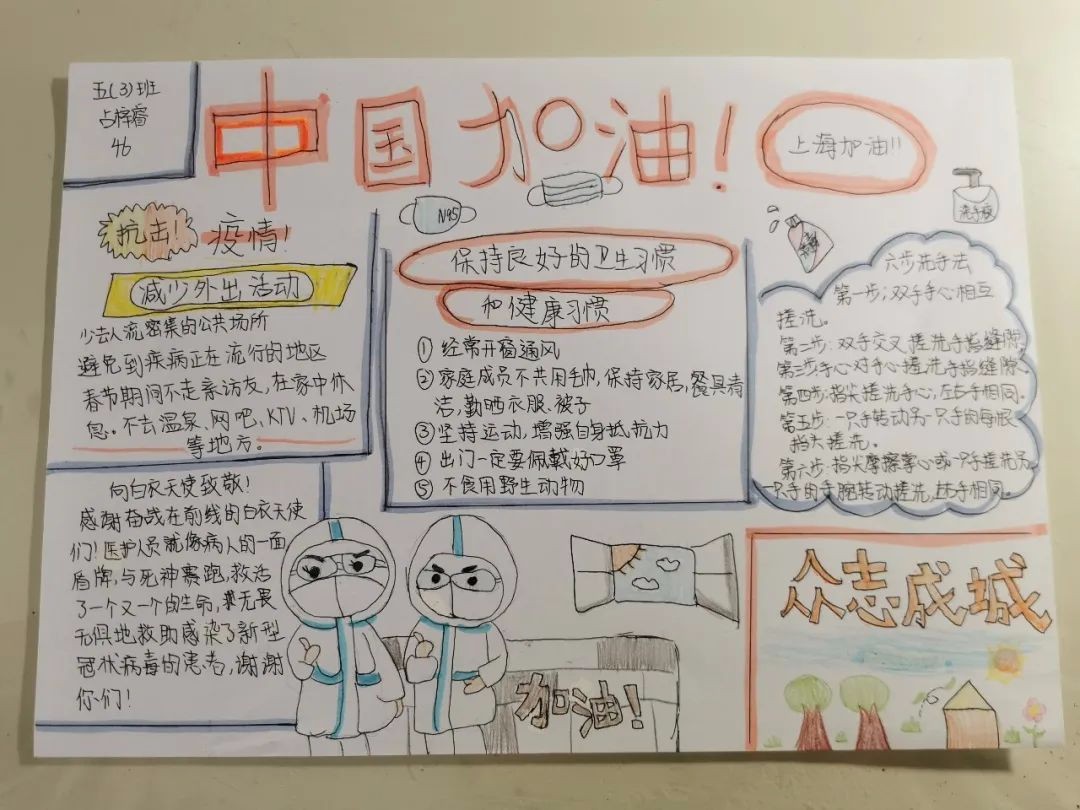 五(3)班
占梓睿
46
中国加油!
上海加油!!
N95
洗手液
抗击!
疫情!
减少外出活动
少去人流密集的公共场所
避免到疾病正在流行的地区
春节期间不走亲访友,在家中休
息。不去温泉、网吧、KTV、机场
等地方。
保持良好的卫生习惯
和健康习惯
① 经常开窗通风
② 家庭成员不共用毛巾,保持家居,餐具清
洁,勤晒衣服、被子
③ 坚持运动,增强自身抵抗力
④ 出门一定要佩戴好口罩
⑤ 不食用野生动物
六步洗手法
第一步;双手手心相互
搓洗。
第二步:双手交叉搓洗手指缝隙
第三步手心对手心搓洗手指缝隙
第四步:指尖搓洗手心,左右手相同。
第五步:一只手转动另一只手的每根
指头搓洗。
第六步:指尖摩擦掌心或一只手搓洗另
一只手的手腕转动搓洗,左右手相同。
向白衣天使致敬!
感谢奋战在前线的白衣天使
们!医护人员就像病人的一面
盾牌,与死神赛跑,救活
了一个又一个的生命,无畏
无惧地救助感染了新型
冠状病毒的患者,谢谢
你们!
加油!
众志成城